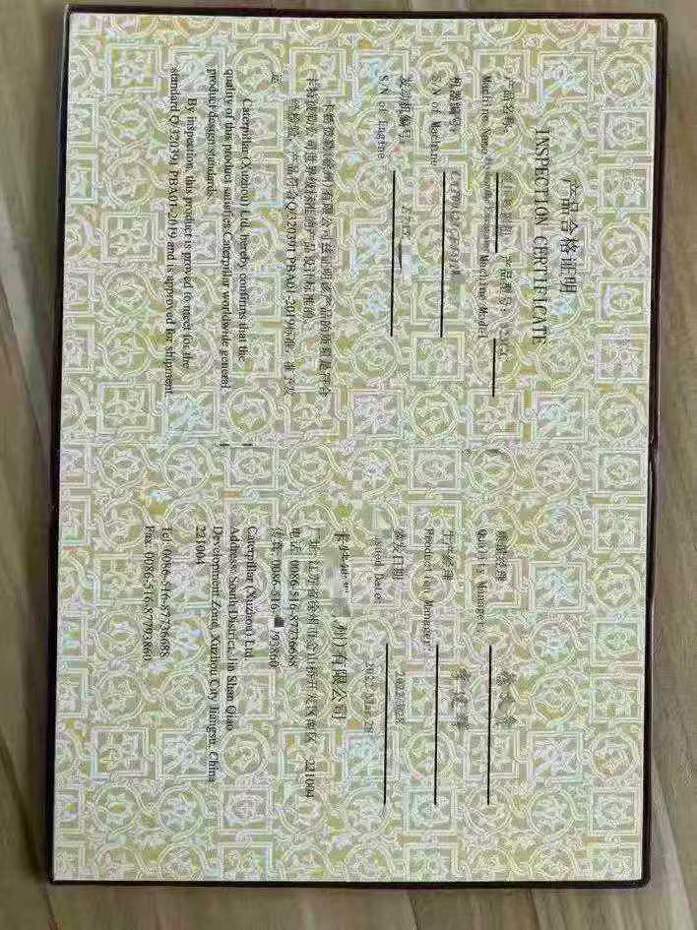 产品合格证明
INSPECTION CERTIFICATE
产品名称:
产品型号:
Machine Name
Machine Model
机器编号:
S/N of Machine
发动机编号
S/N of Engine
卡特彼勒(徐州)有限公司兹证明该产品的质量是符合
卡特彼勒公司世界级标准的产品设计标准的。
经检验,产品符合Q/320391 PBA01-2019标准,准予发
运
Caterpillar (Xuzhou) Ltd. hereby confirms that the
quality of this product satisfies Caterpillar worldwide general
product design standards.
By inspection, this product is proved to meet for the
standard Q/320391 PBA01-2019 and is approved for shipment.
质量经理
Quality Manager:
生产经理
Production Manager:
签发日期
Issued Date:
州)有限公司
厂址: 江苏省徐州市金山桥开发区南区 221004
电话: 0086-516-87736688
传真: 0086-516-
793860
Caterpillar (Xuzhou) Ltd.
Address: South District, Jin Shan Qiao
Development Zone, Xuzhou City Jiangsu, China
221004
Tel: 0086-516-87736688
Fax: 0086-516-87793860